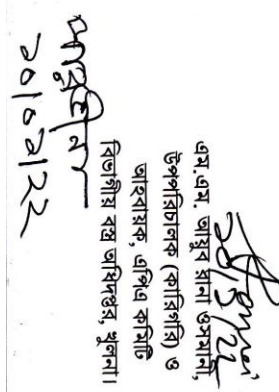 20/3/22
এস.এম. আয়ুব রানা ওসমানী,
উপপরিচালক (কারিগরি) ও
আহবায়ক, এপিএ কমিটি
বিভাগীয় বস্ত্র অধিদপ্তর, খুলনা।
২০/০৩/২২